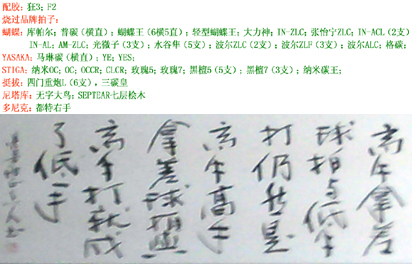 配胶：狂3；F2
烧过品牌拍子：
蝴蝶：库帕尔；普碳（横直）；蝴蝶王（6横5直）；轻型蝴蝶王；大力神；IN-ZLC；张怡宁ZLC；IN-ACL（2支）
IN-AL；AM-ZLC；光微子（3支）；水谷隼（5支）；波尔ZLC（2支）；波尔ZLF（3支）；波尔ALC；格碳；
YASAKA：马琳碳（横直）；YE；YES；
STIGA：纳米OC；OC；OCCR；CLCR；玫瑰5；玫瑰7；黑檀5（5支）；黑檀7（3支）；纳米碳王；
挺拔：四门重炮L（6支），三碳皇
尼塔库：无字大鸟；SEPTEAR七层桧木
多尼克：都特右手
高手拿差
球拍与低手
打仍然是
高手高手
拿差球拍与
高手打就成
了低手